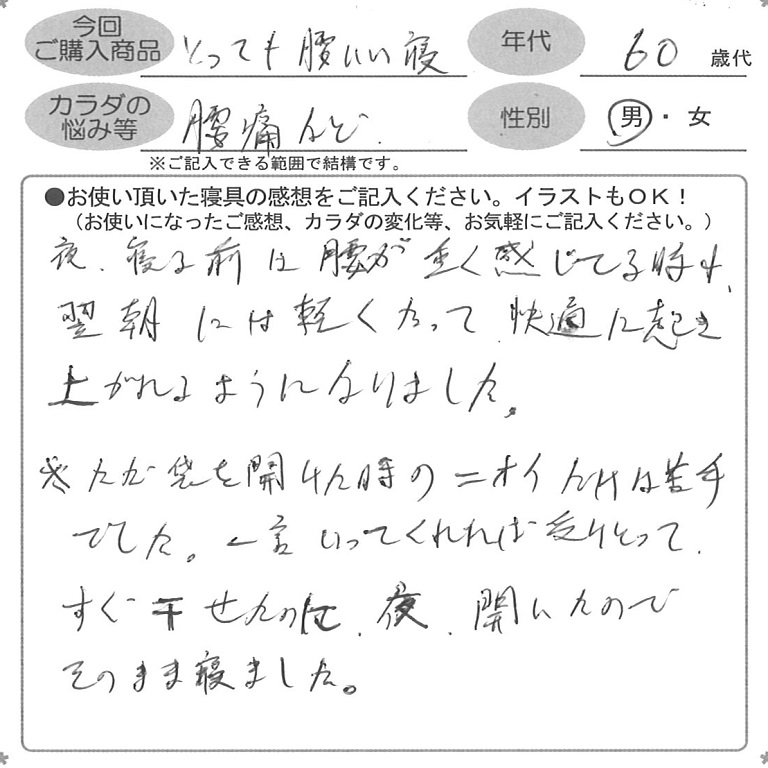 今回
ご購入商品
とっても腰いい寝
年代
60 歳代
カラダの
悩み等
腰痛など
性別
男・女
※ご記入できる範囲で結構です。
●お使い頂いた寝具の感想をご記入ください。イラストもOK!
(お使いになったご感想、カラダの変化等、お気軽にご記入ください。)
夜、寝る前は腰が重く感じてる時も、
翌朝には軽くなって快適に起き
上がれるようになりました。
※ただ袋を開けた時のニオイだけは苦手
でした。一言いってくれれば受けとって
すぐ干せたのに、夜、開いたので
そのまま寝ました。